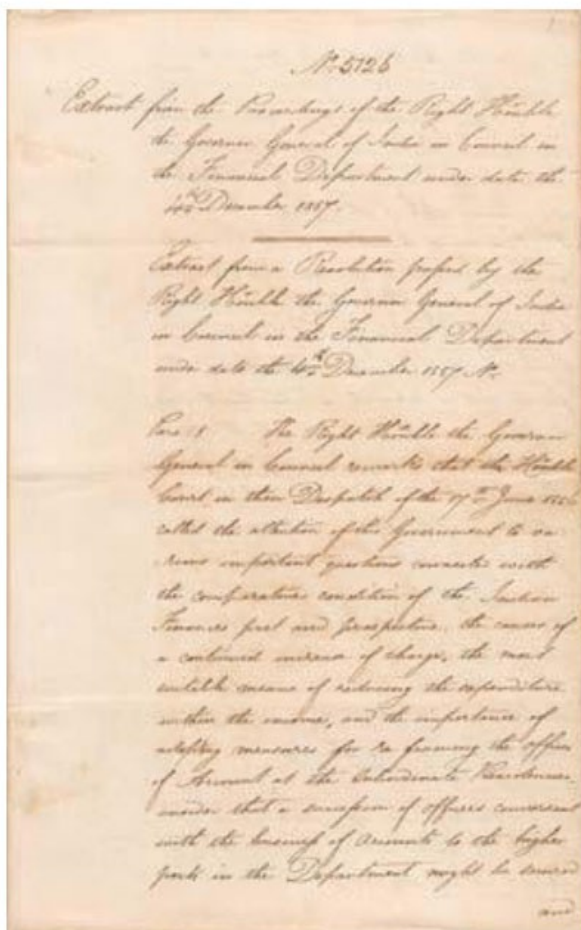 No. 5126
Extract from the Proceedings of the Right Honble
the Governor General of India in Council in
the Financial Department under date the
December 1857.
Extract from a Resolution passed by the
Right Honble the Governor General of India
in Council in the Financial Department
under date the 4th December 1857 No.
Para 1 The Right Honble the Governor
General in Council remarks that the Honble
Court in their Despatch of the 17th June
called the attention of this Government to va-
rious important questions connected with
the comparative condition of the Indian
Finances past and prospective, the causes of
a continued increase of charge, the most
suitable means of reducing the expenditure
within the income, and the importance of
adopting measures for re forming the offices
of Account at the Subordinate Presidencies
in order that a succession of officers conversant
with the business of Accounts to the higher
posts in the Department might be secured
and